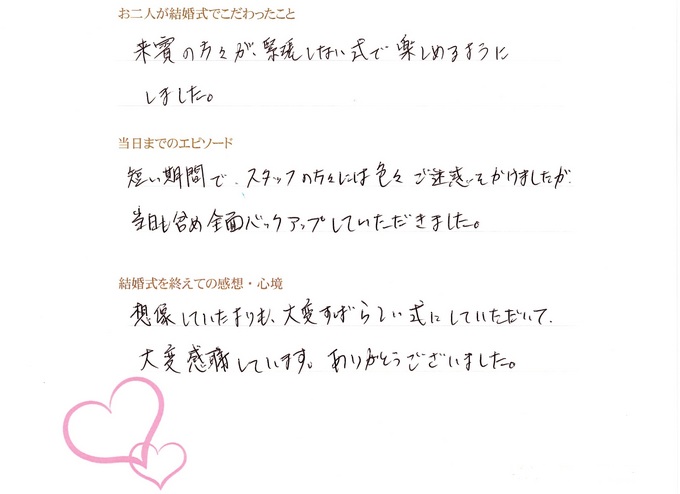 お二人が結婚式でこだわったこと
来賓の方々が、緊張しない式で楽しめるように
しました。
当日までのエピソード
短い期間で、スタッフの方々には色々ご迷惑をかけましたが、
当日も含め全面バックアップしていただきました。
結婚式を終えての感想・心境
想像していたよりも、大変すばらしい式にしていただいて、
大変感謝しています。ありがとうございました。